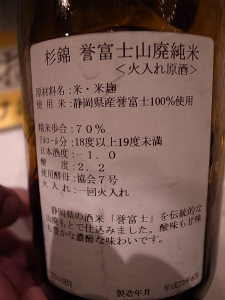 杉錦 誉富士山廃純米
<火入れ原酒>
原材料名:米・米麹
使用米:静岡県産誉富士100%使用
精米歩合:70%
アルコール分:18度以上19度未満
日本酒度:-1.0
酸度:2.2
使用酵母:協会7号
火入れ:一回火入れ
静岡県の酒米「誉富士」を伝統的な
山廃もとで仕込みました。酸味も甘味
も豊かな濃醇な味わいです。
製造年月 平成